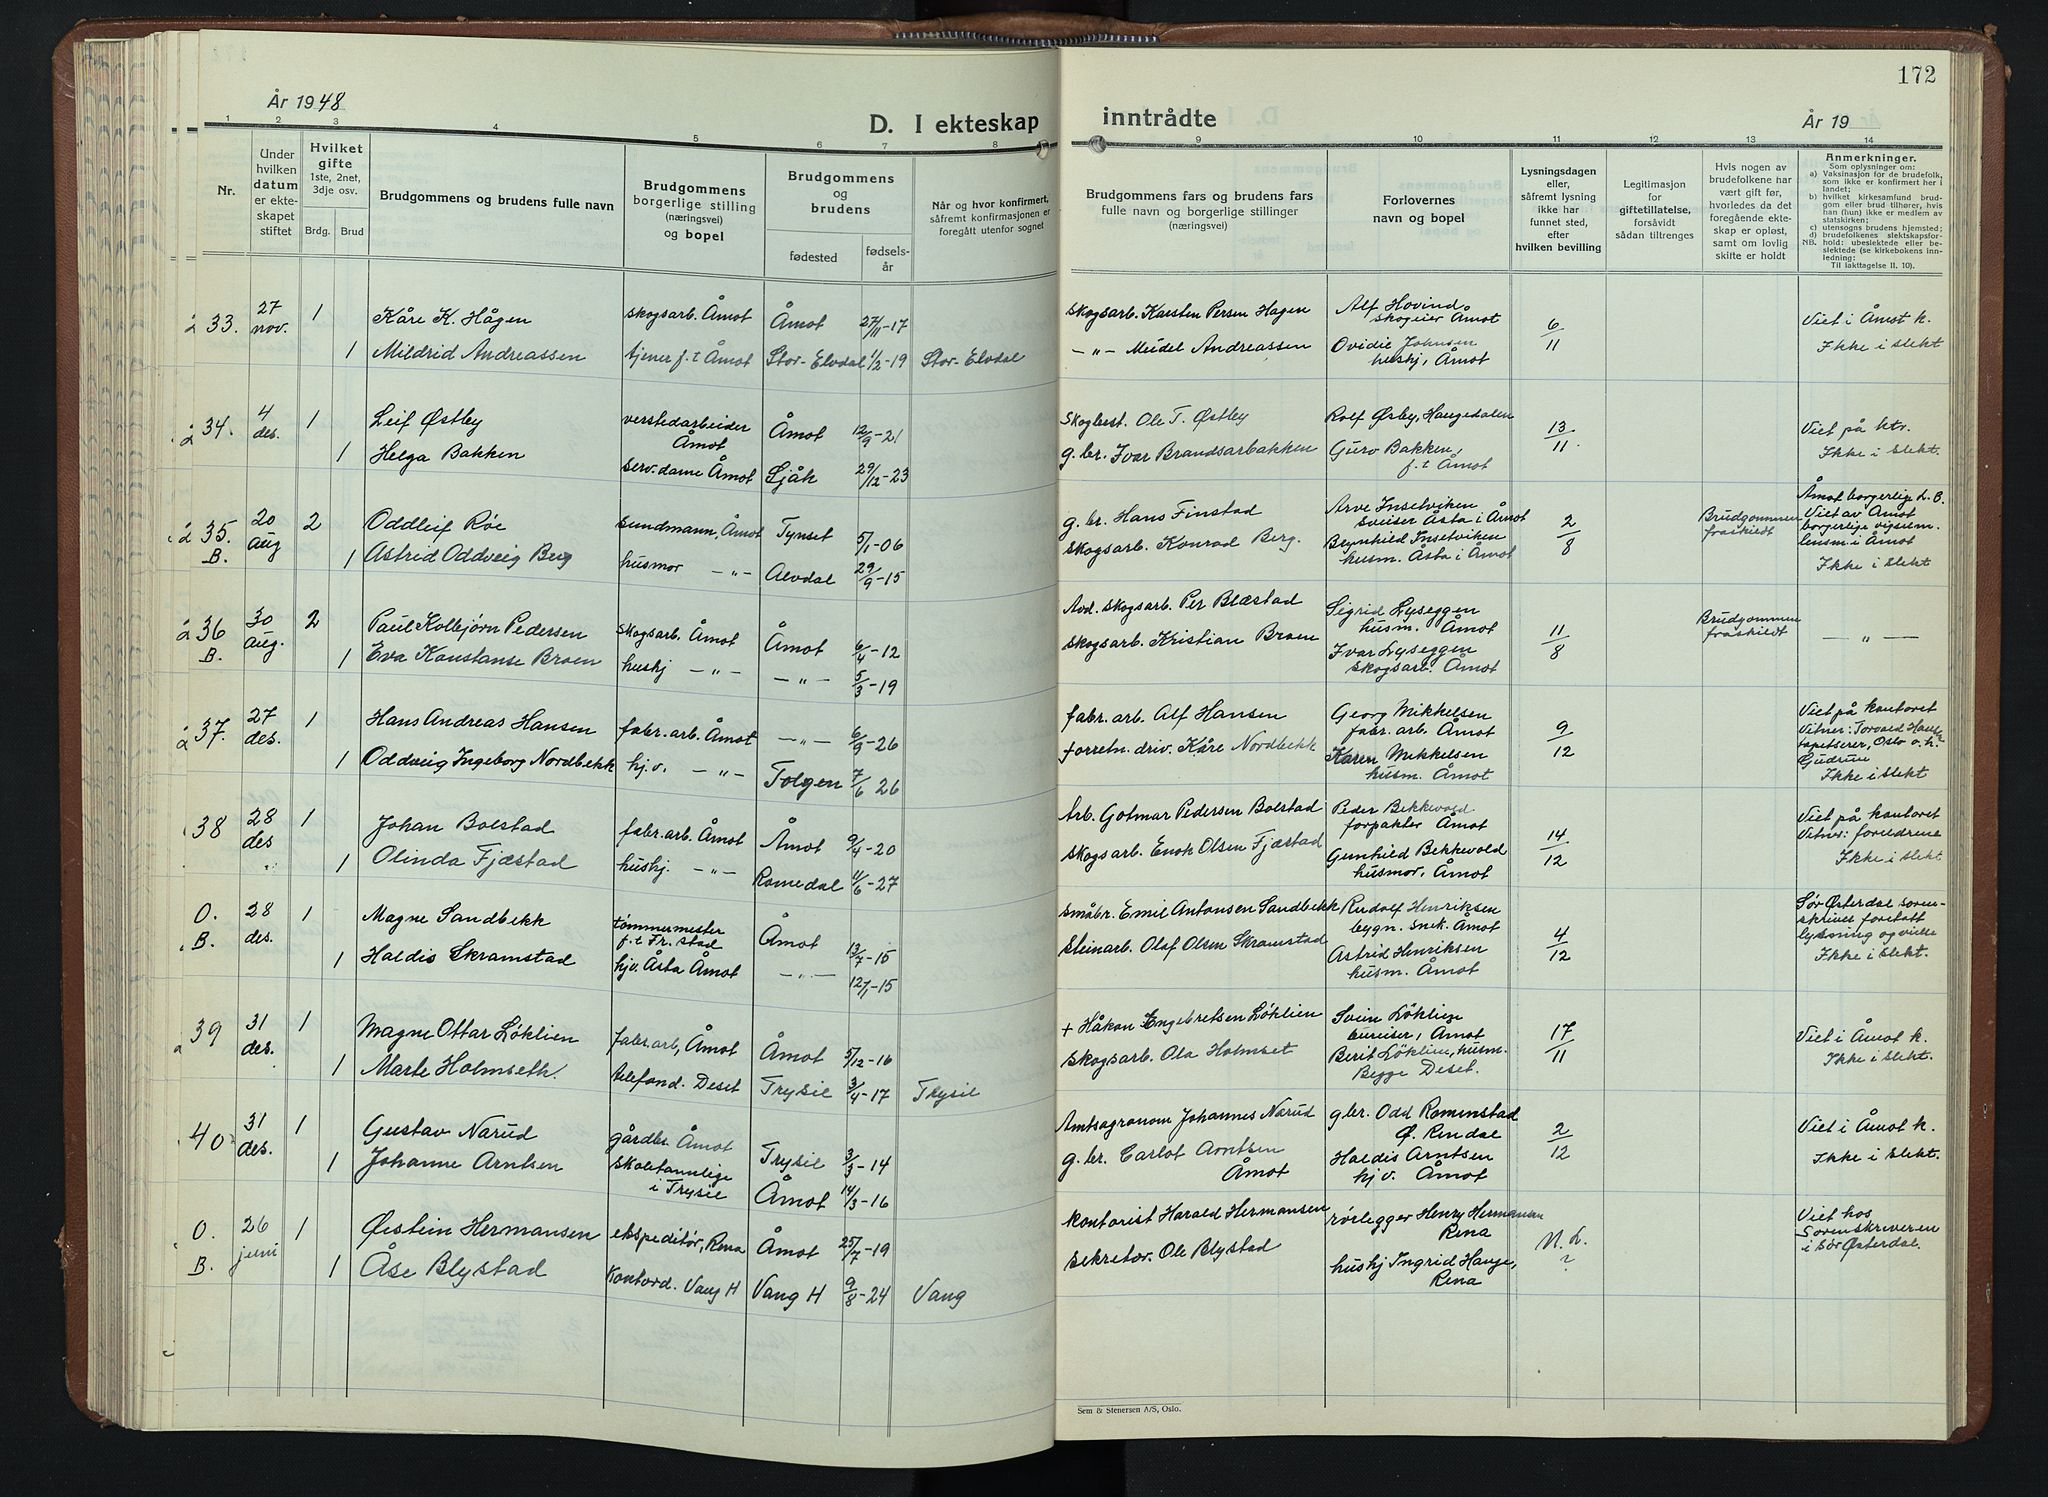 172
År 1948
D. I ekteskap inntrådte
År 19
1 2 3 4 5 6 7 8 9 10 11 12 13 14
Nr.
Under hvilken datum er ekteskapet stiftet
Hvilket gifte
1ste, 2net, 3dje osv.
Brdg. Brud
Brudgommens og brudens fulle navn
Brudgommens borgerlige stilling (næringsvei) og bopel
Brudgommens og brudens
fødested
fødselsår
Når og hvor konfirmert,
såfremt konfirmasjonen er
foregått utenfor sognet
Brudgommens fars og brudens fars
fulle navn og borgerlige stillinger
(næringsvei)
Forlovernes
navn og bopel
Lysningsdagen
eller,
såfremt lysning
ikke har
funnet sted,
efter
hvilken bevilling
Legitimasjon
for
giftetillatelse,
forsåvidt
sådan tiltrenges
Hvis nogen av
brudefolkene har
vært gift før,
hvorledes da det
foregående ekte-
skap er opløst,
samt om lovlig
skifte er holdt
Anmerkninger.
Som oplysninger om:
a) Vaksinasjon for de brudefolk,
som ikke er konfirmert her i
landet;
b) hvilket kirkesamfund brud-
gom eller brud tilhører, hvis
han (hun) ikke er medlem av
statskirken;
c) utensogns brudens hjemsted;
d) brudefolkenes slektskapsfor-
NB. hold: ubeslektede eller be-
slektede (se kirkebokens inn-
ledning:
Til iakttagelse II. 10).
33. 27 nov. 1 Kåre K. Hågen skogsarb. Åmot Åmot 27/11-17 skogsarb. Karsten Persen Hagen Alf Hovind skogeier Åmot 6/11 Viet i Åmot k.
1 Mildrid Andreassen tjener f.t Åmot Stor-Elvdal 1/2-19 Stor-Elvdal —„— Meidel Andreassen Ovidie Johnsen hushj, Åmot Ikke i slekt
34. 4 des. 1 Leif Østby verstedarbeider Åmot Åmot 12/9-21 Skogbest. Ole T. Østby Rolf Øsby, Haugedalen 13/11 Viet på ktr.
1 Helga Bakken serv.dame Åmot Sjåk 29/12-23 g.br. Ivar Brandsarbakken Guro Bakken, f.t Åmot Ikke i slekt.
35. B. 20 aug 2 Oddleif Røe sundmann, Åmot Tynset 5/1-06 g.br. Hans Finstad Arve Insetviken sveiser Åsta i Åmot 2/8 Brudgommen fraskildt Åmot borgerlige L.B. Viet av Åmot borgerlige vigselm. lensm. i Åmot
1 Astrid Oddveig Berg husmor —„— Alvdal 29/9-15 skogsarb. Konrad Berg. Brynhild Insetviken husm. Åsta i Åmot Ikke i slekt
36 B. 30 aug. 2 Paul Kolbjørn Pedersen skogsarb. Åmot Åmot 6/4-12 Avd. skogsarb. Per Blæstad Sigrid Lyseggen husm. Åmot 11/8 Brudgommen fraskildt —„—
1 Eva Konstanse Broen hushj —„— —„— 5/3-19 skogsarb. Kristian Broen Ivar Lyseggen skogsarb. Åmot
37. 27 des. 1 Hans Andreas Hansen fabr.arb. Åmot —„— 6/9-26 fabr.arb. Alf Hansen Georg Mikkelsen fabr.arb. Åmot 9/12 Viet på kontoret Vitner: Torvald tapetserer, Oslo o.h. Gudrun
1 Oddveig Ingeborg Nordbekk hj.v. —„— Tolgen 7/6 26 forretn.driv. Kåre Nordbekk Karen Mikkelsen husm. Åmot Ikke i slekt
38 28 des 1 Johan Bolstad fabr.arb. Åmot Åmot 9/4-20 Arb. Gotmar Pedersen Bolstad Peder Bekkevold forpakter Åmot 14/12 Viet på kontoret Vitner: foreldrene
1 Olinda Fjæstad hushj. —„— Romedal 11/6-27 skogsarb. Enok Olsen Fjæstad Gunhild Bekkevold husmor, Åmot Ikke i slekt
O. B. 28 des. 1 Magne Sandbekk tømmermester f.t Fr.stad Åmot 13/7-15 småbr. Emil Antonsen Sandbekk Rudolf Henriksen bygn.snek. Åmot 4/12 Sør Østerdal soren- skrives foretatt lysning og vielse
1 Haldis Skramstad hjv. Åsta Åmot —„— 12/11-15 Steinarb. Olaf Olsen Skramstad Astrid Henriksen husm. Åmot Ikke i slekt.
39 31 des. 1 Magne Ottar Løklien fabr.arb, Åmot Åmot 5/12-16 + Håkon Engebretsen Løklien Svein Løklien bureiser, Åmot 17/11 Viet i Åmot k.
1 Marte Holmseth. telefond. Deset Trysil 3/4-17 Trysil skogsarb. Ola Holmset Berit Løklien, husm. Begge Deset. Ikke i slekt
40 31 des. 1 Gustav Narud gårdbr. Åmot Trysil 3/3-14 Amtsagronom Johannes Narud g.br. Odd Romenstad Ø. Rendal 2/12 Viet i Åmot k.
1 Johanne Arntsen skoletannlege i Trysil Åmot 14/3-16 g.br. Carlot Arntsen Åmot Haldis Arntsen hj v. Åmot Ikke i slekt.
O. B. 26 juni 1 Øistein Hermansen ekspeditør, Rena Åmot 25/7-19 kontorist Harald Hermansen rørlegger Henry Hermansen Rena N.L. ? Viet hos Sorenskriveren i Sør Østerdal.
1 Åse Blystad Kontord. Vang H Vang H 9/8-24 Vang sekretær. Ole Blystad hushj Ingrid Hauge, Rena
Sem & Stenersen A/S, Oslo.